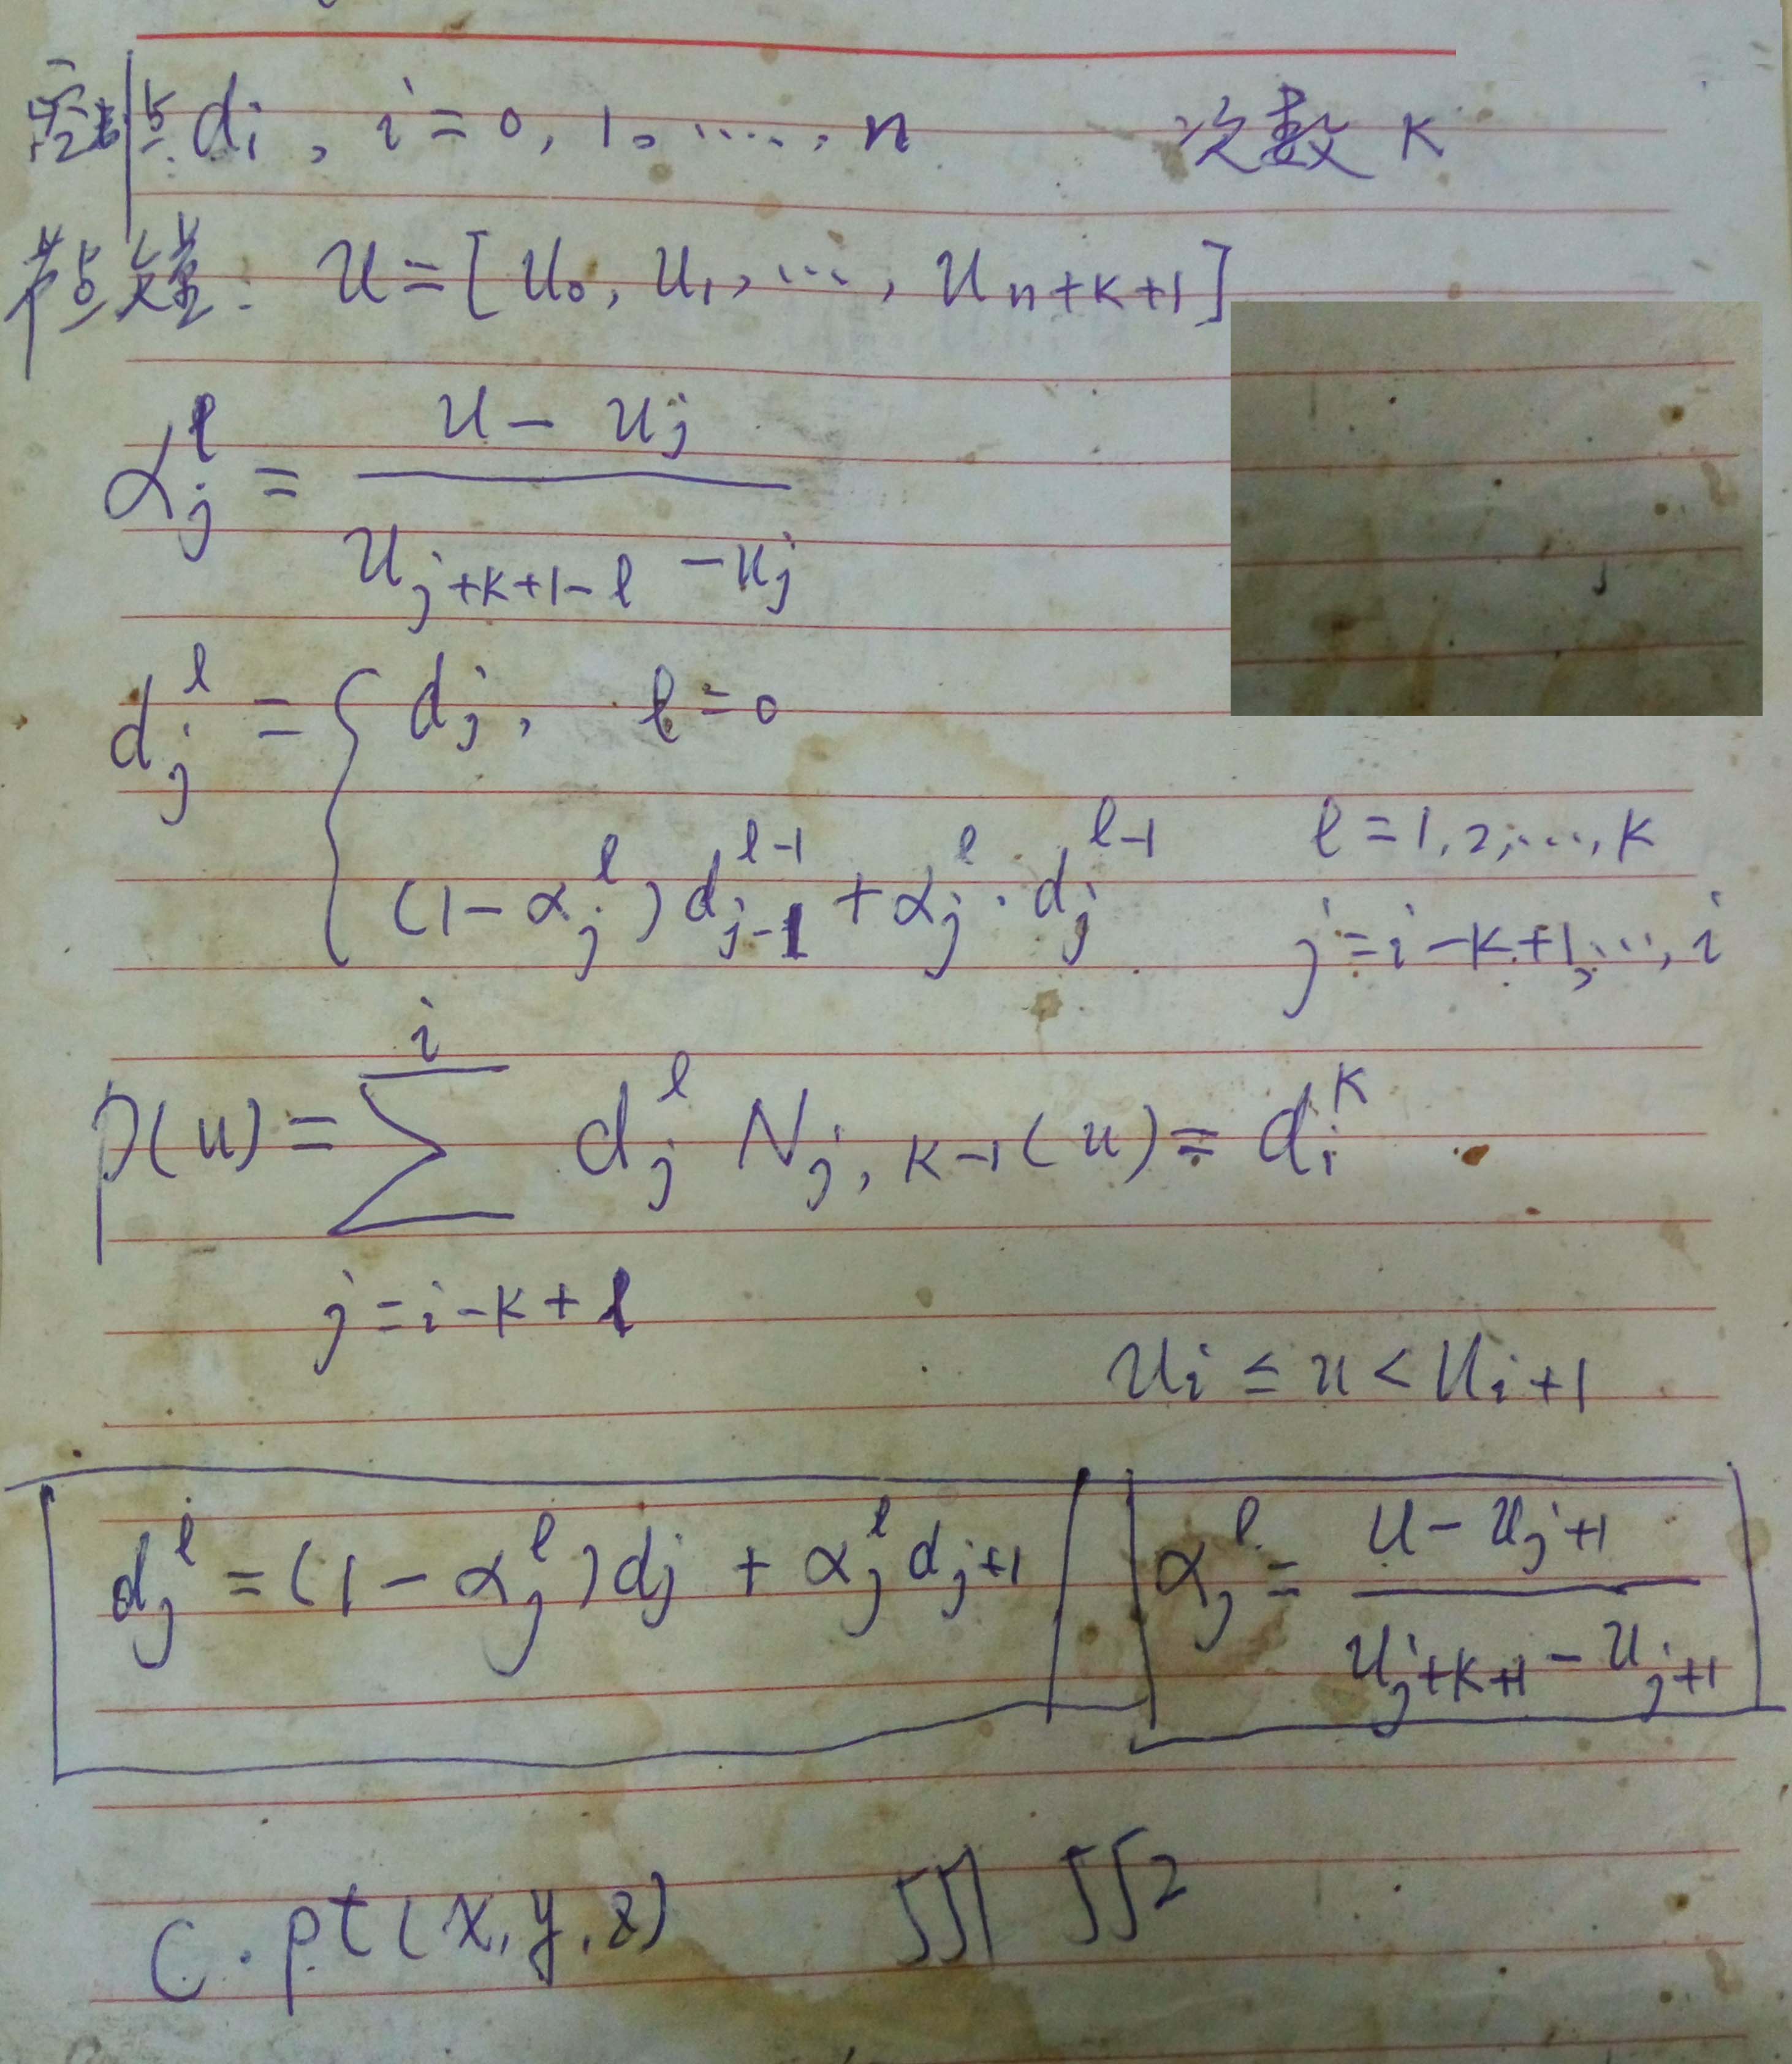 控制点 di, i=0, 1, ……, n 次数 K
节点矢量: U=[u₀, u₁, …, u_{n+K+1}]
α_j^l = (u - u_j) / (u_{j+K+1-l} - u_j)
d_j^l = { d_j, l=0
(1-α_j^l) d_{j-1}^{l-1} + α_j^l · d_j^{l-1} l=1,2,…,K
j=i-K+1,…,i
p(u) = ∑_{j=i-K+l}^{i} d_j^l N_{j,K-l}(u) = d_i^K
u_i ≤ u < u_{i+1}
d_j^l = (1-α_j^l) d_j + α_j^l d_{j+1} α_j^l = (u - u_{j+1}) / (u_{j+K+1} - u_{j+1})
C.pt(x,y,z)